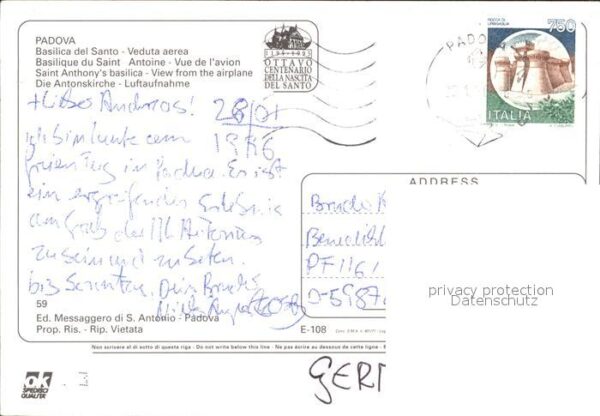 PADOVA
Basilica del Santo - Veduta aerea
Basilique du Saint Antoine - Vue de l'avion
Saint Anthony's basilica - View from the airplane
Die Antonskirche - Luftaufnahme
1195-1995
OTTAVO
CENTENARIO
DELLA NASCITA
DEL SANTO
ROCCA DI
URBISAGLIA
750
ITALIA
PADOVA
Andreas! 28/01
ich bin heute am 1996
freien Tag in Padua. Es ist
ein ergreifendes Erlebnis
am Grab des Hl. Antonius
zu sein und zu beten.
bis Dein Bruder
59
Ed. Messaggero di S. Antonio - Padova
Prop. Ris. - Rip. Vietata
ADDRESS
Bruder
PF 1161
D-5987
privacy protection
Datenschutz
E-108
Non scrivere al di sotto di questa riga - Do not write below this line - Ne pas écrire au dessous de cette ligne -
ok
SPEDISCI
QUALITA'
GER